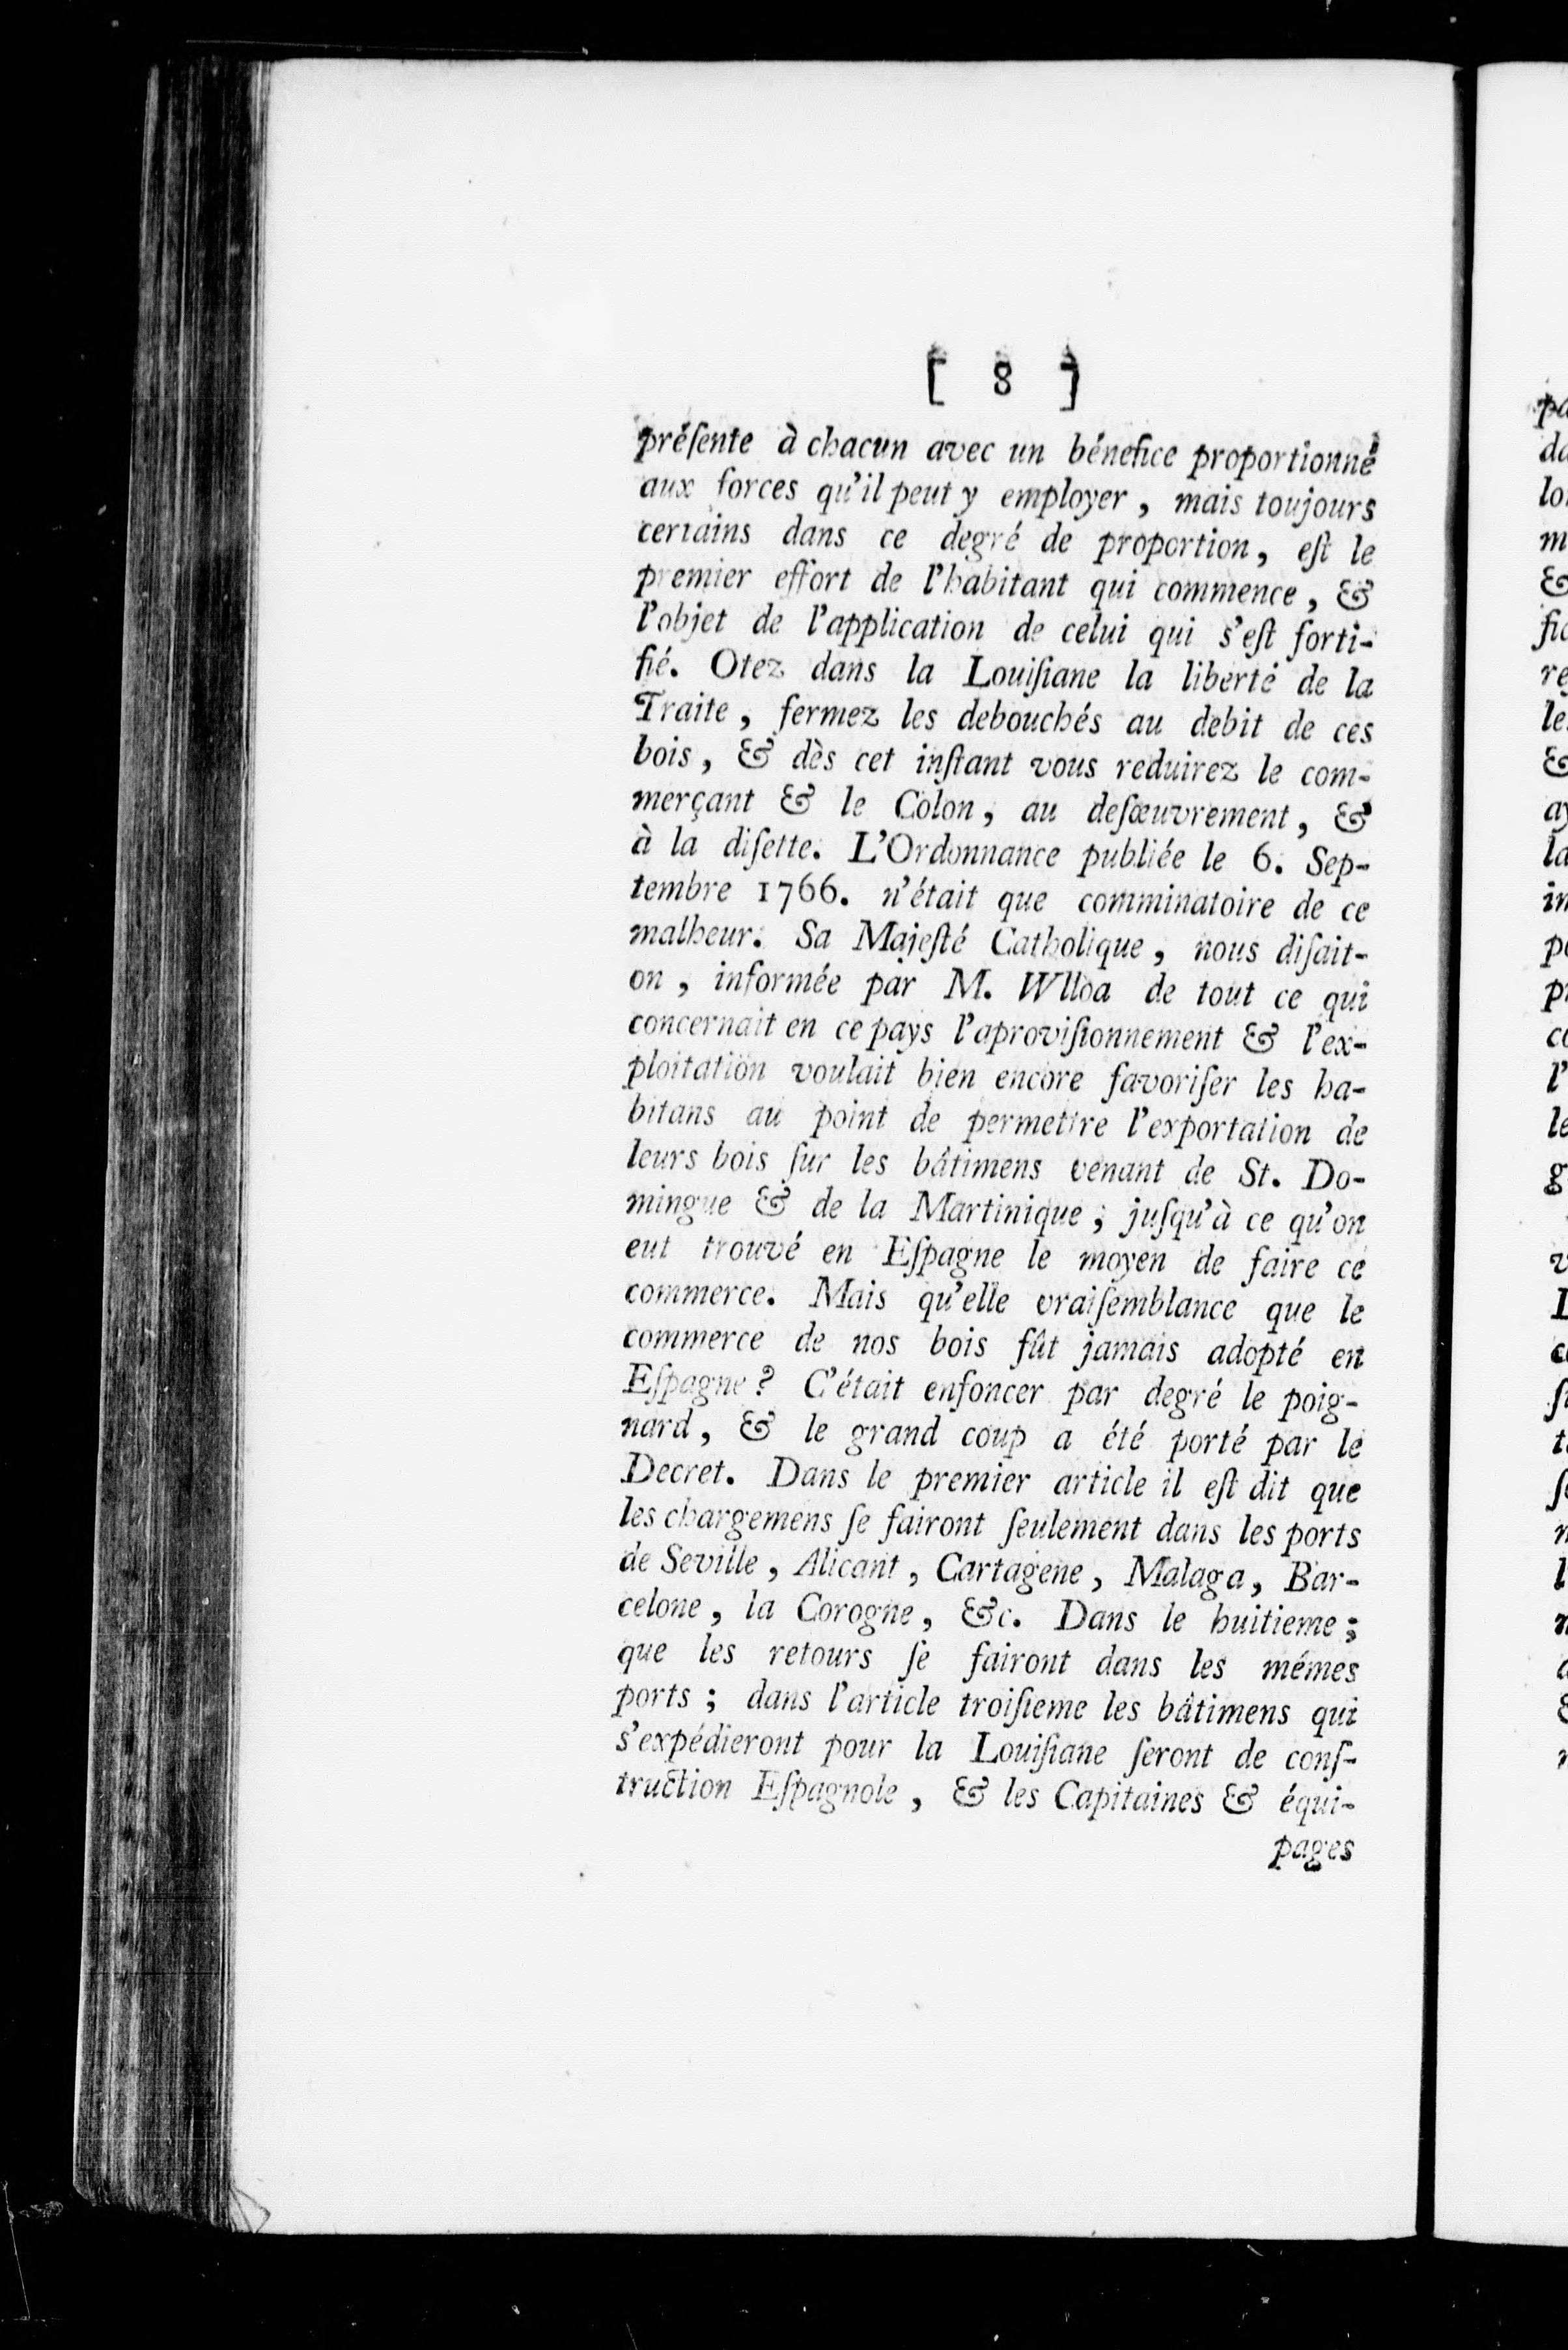 [ 8 ]
préſente à chacun avec un bénefice proportionné
aux forces qu'il peut y employer, mais toujours
certains dans ce degré de proportion, eſt le
premier effort de l'habitant qui commence, &
l'objet de l'application de celui qui s'eſt forti-
fié. Otez dans la Louiſiane la liberté de la
Traite, fermez les debouchés au debit de ces
bois, & dès cet inſtant vous reduirez le com-
merçant & le Colon, au deſœuvrement, &
à la diſette. L'Ordonnance publiée le 6. Sep-
tembre 1766. n'était que comminatoire de ce
malheur. Sa Majeſté Catholique, nous diſait-
on, informée par M. Wlloa de tout ce qui
concernait en ce pays l'aproviſionnement & l'ex-
ploitation voulait bien encore favoriſer les ha-
bitans au point de permettre l'exportation de
leurs bois ſur les bâtimens venant de St. Do-
mingue & de la Martinique; juſqu'à ce qu'on
eut trouvé en Eſpagne le moyen de faire ce
commerce. Mais qu'elle vraiſemblance que le
commerce de nos bois fût jamais adopté en
Eſpagne? C'était enfoncer par degré le poig-
nard, & le grand coup a été porté par le
Decret. Dans le premier article il eſt dit que
les chargemens ſe fairont ſeulement dans les ports
de Seville, Alicant, Cartagene, Malaga, Bar-
celone, la Corogne, &c. Dans le huitieme;
que les retours ſe fairont dans les mémes
ports; dans l'article troiſieme les bâtimens qui
s'expédieront pour la Louiſiane ſeront de conſ-
truction Eſpagnole, & les Capitaines & équi-
pages